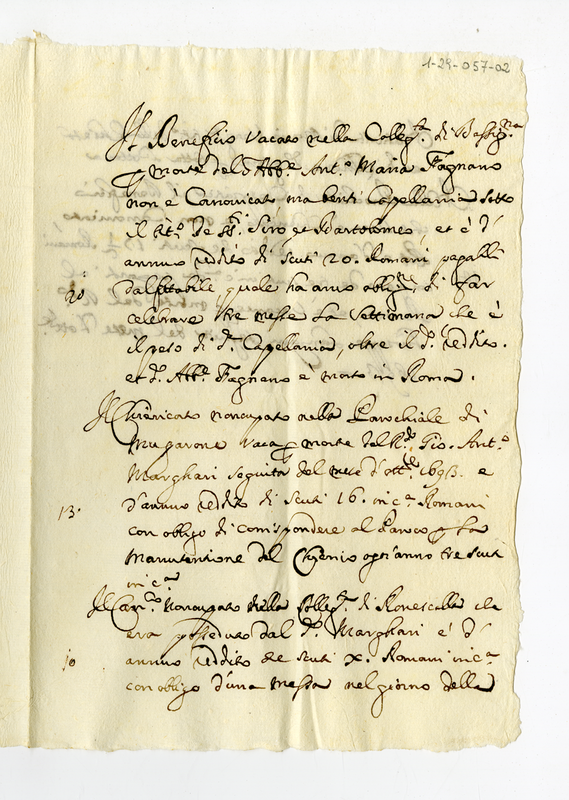 1-29-057-02
Il Beneficio Vacato nella Colleg.ta di Bassig.na
p morte del d. Abb.e Ant.o Maria Fagnano
non è Canonicato ma bensi Capellania sotto
il tt.o de SS.i Siro, et Bartolomeo et è d'
annuo reddito di scuti 20. Romani pagabili
20 dal fittabile quale ha anco obligo di far
celebrare tre messe la settimana che è
il peso di d.a Capellania, oltre il d.o reddito.
et d.o Abb.e Fagnano è morto in Roma.
Il Chiericato noncupato nella Parochiale di
Mugarone Vaca p morte del R.do Gio. Ant.o
Marghari seguita del mese d'ott.e 1693. e
13. d'annuo reddito di scuti 16. in c.a Romani
con obligo di corrispondere al Paroco p la
Manutentione del Chierico ogn'anno tre scuti
in c.a
Il Can.to noncupato della Colleg.ta di Ronescalla che
era posseduto dal d.o Marghari è d'
10 annuo reddito de scuti X. Romani in c.a
con obligo d'una messa nel giorno della